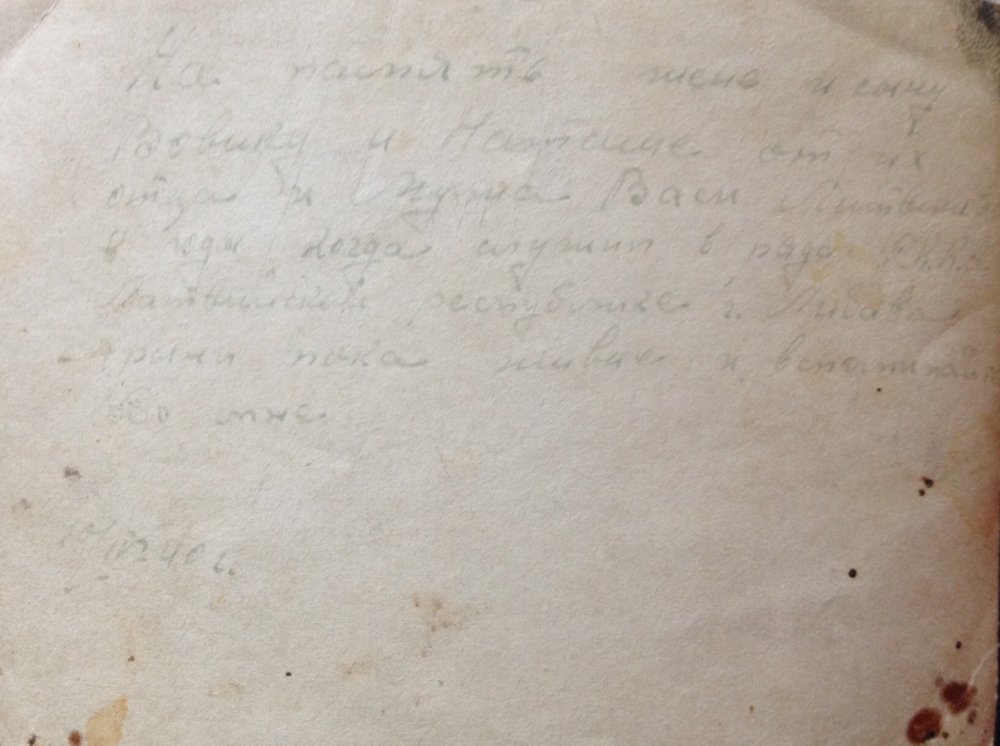 На память жене и сыну
Вовику и Наташе от их
отца и Мужа Васи
в годы когда служил в
Латвийской республике г. Либава
храни пока живые и вспоминайте
обо мне.
40 г.